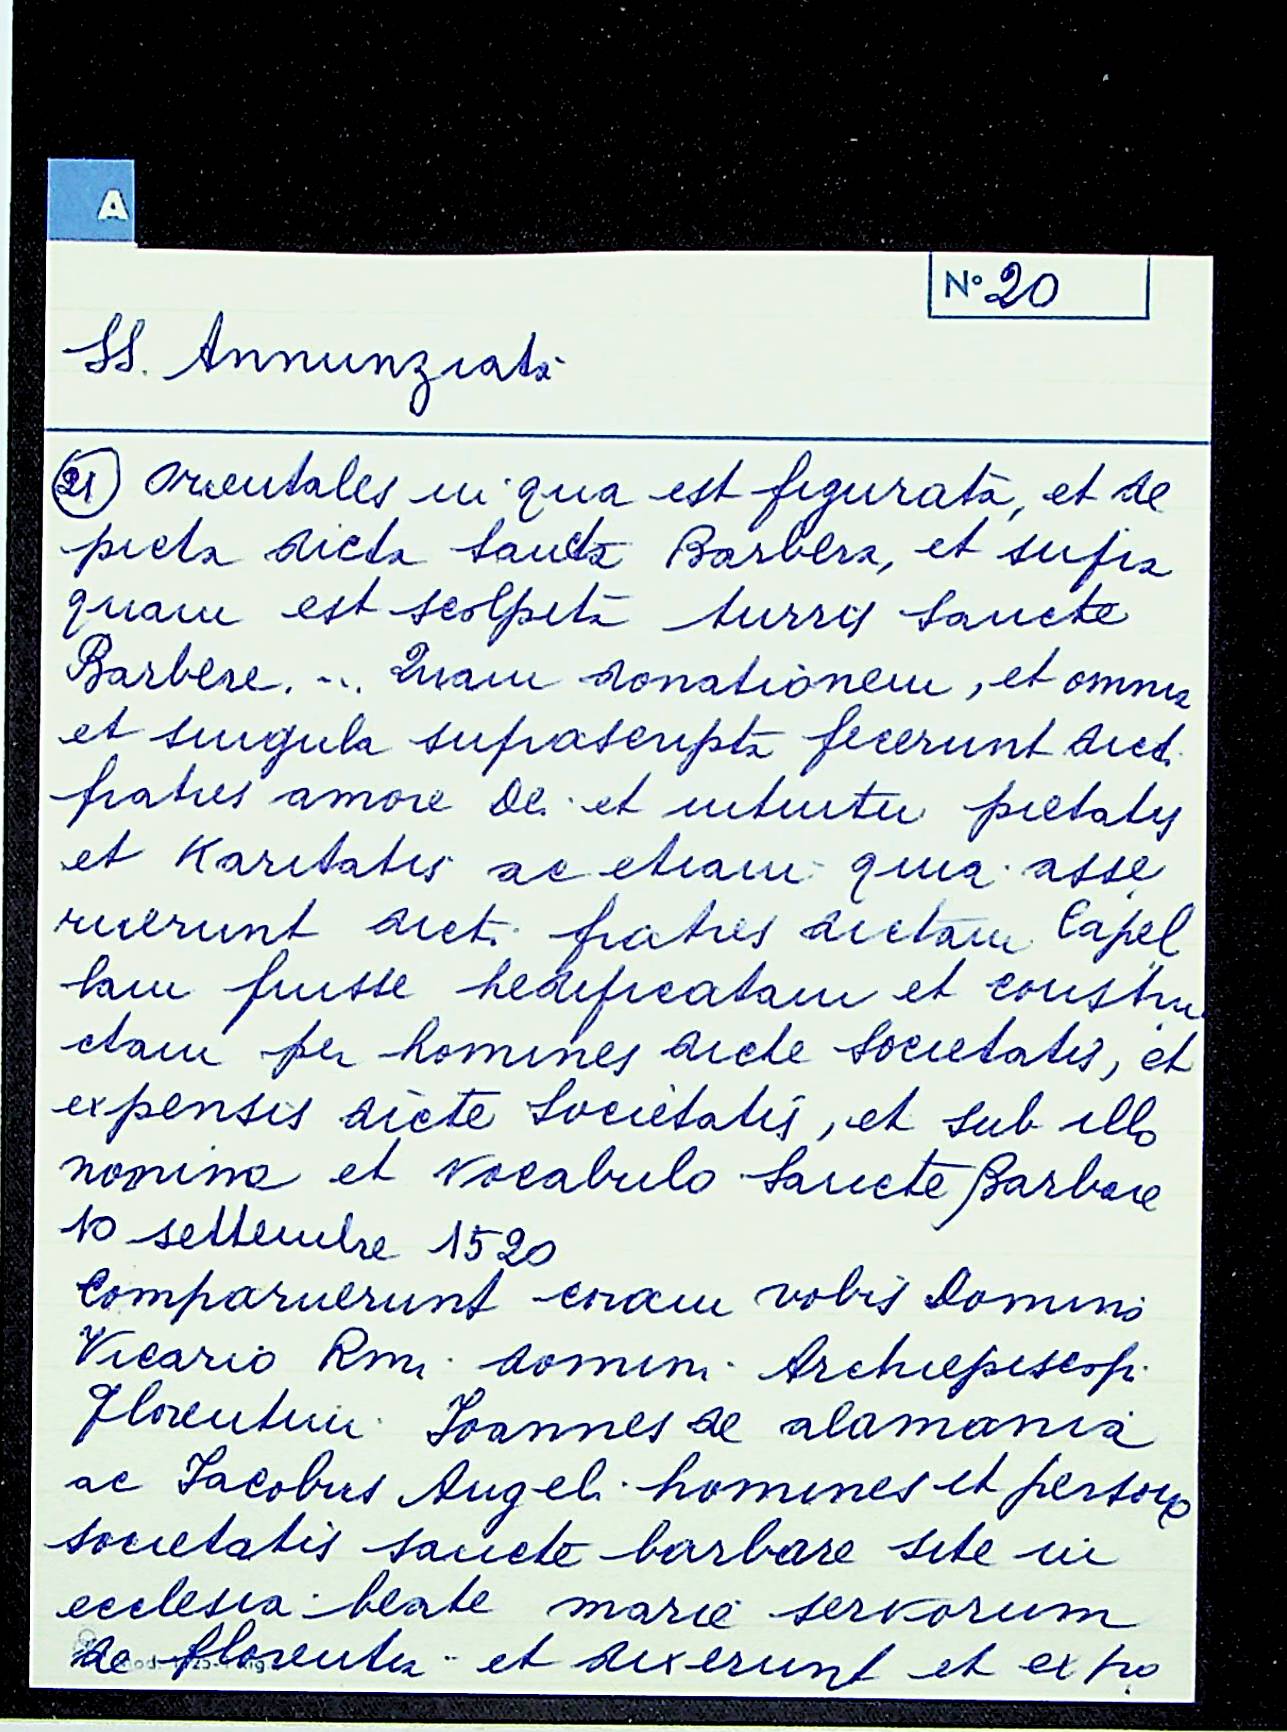 A
N° 20
SS. Annunziata
21 orientales in qua est figurata, et de
picta dicta Sancta Barbera, et supra
quam est scolpita turris Sancte
Barbere. ... Quam donationem, et omnia
et singula suprascripta fecerunt dicti
fratres amore Dei et intuitu pietatis
et Karitatis ac etiam quia asse
ruerunt dicti fratres dictam Capel
lam fuisse hedificatam et constru
ctam per homines dicte Societatis, et
expensis dicte Societatis, et sub illo
nomine et vocabulo Sancte Barbare
10 settembre 1520
Comparuerunt coram vobis Domino
Vicario Rmi domini Archiepiscopi
Florentini Joannes de alamania
ac Jacobus Angeli homines et persone
societatis sancte barbare site in
ecclesia beate marie servorum
de florentia et dixerunt et expo